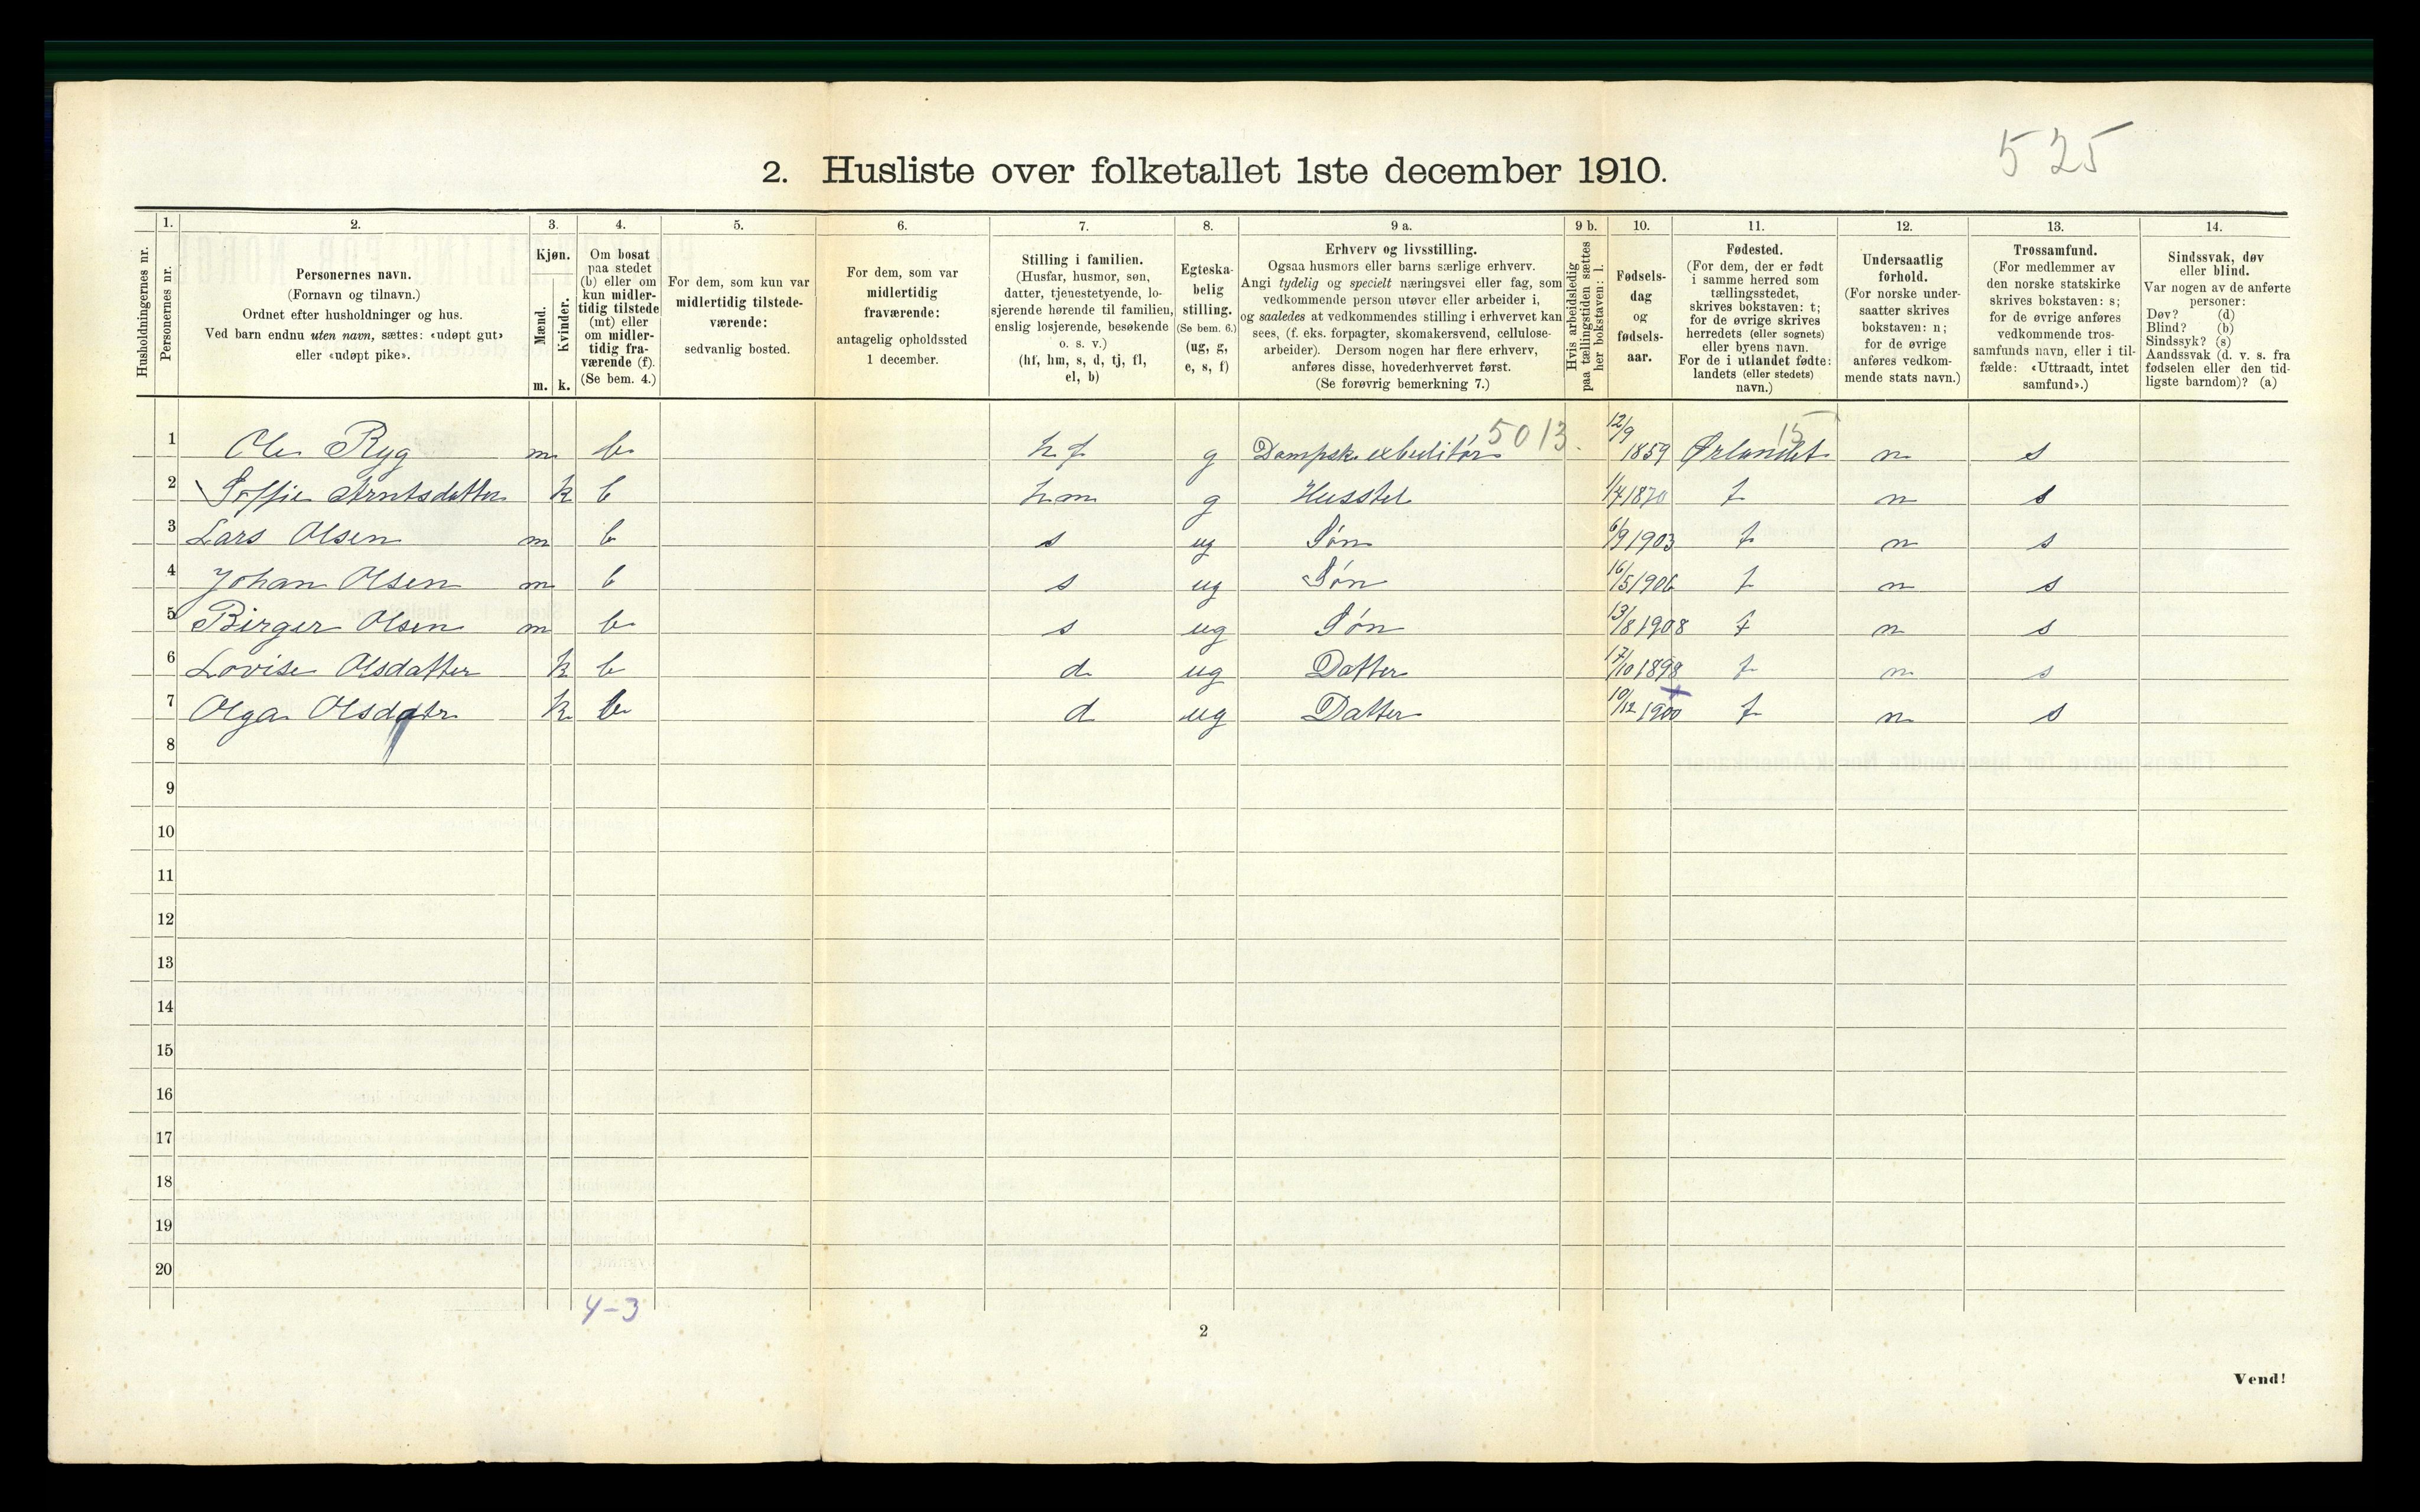 525
2. Husliste over folketallet 1ste december 1910.
Husholdningernes nr.
1.
Personernes nr.
2.
Personernes navn.
(Fornavn og tilnavn.)
Ordnet efter husholdninger og hus.
Ved barn endnu uten navn, sættes: «udøpt gut»
eller «udøpt pike».
3.
Kjøn.
Mænd.
Kvinder.
m. k.
4.
Om bosat
paa stedet
(b) eller om
kun midler-
tidig tilstede
(mt) eller
om midler-
tidig fra-
værende (f).
(Se bem. 4.)
5.
For dem, som kun var
midlertidig tilstede-
værende:
sedvanlig bosted.
6.
For dem, som var
midlertidig
fraværende:
antagelig opholdssted
1 december.
7.
Stilling i familien.
(Husfar, husmor, søn,
datter, tjenestetyende, lo-
sjerende hørende til familien,
enslig losjerende, besøkende
o. s. v.)
(hf, hm, s, d, tj, fl,
el, b)
8.
Egteska-
belig
stilling.
(Se bem. 6.)
(ug, g,
e, s, f)
9 a.
Erhverv og livsstilling.
Ogsaa husmors eller barns særlige erhverv.
Angi tydelig og specielt næringsvei eller fag, som
vedkommende person utøver eller arbeider i,
og saaledes at vedkommendes stilling i erhvervet kan
sees, (f. eks. forpagter, skomakersvend, cellulose-
arbeider). Dersom nogen har flere erhverv,
anføres disse, hovederhvervet først.
(Se forøvrig bemerkning 7.)
9 b.
Hvis arbeidsledig
paa tællingstiden sættes
her bokstaven: l.
10.
Fødsels-
dag
og
fødsels-
aar.
11.
Fødested.
(For dem, der er født
i samme herred som
tællingsstedet,
skrives bokstaven: t;
for de øvrige skrives
herredets (eller sognets)
eller byens navn.
For de i utlandet fødte:
landets (eller stedets)
navn.)
12.
Undersaatlig
forhold.
(For norske under-
saatter skrives
bokstaven: n;
for de øvrige
anføres vedkom-
mende stats navn.)
13.
Trossamfund.
(For medlemmer av
den norske statskirke
skrives bokstaven: s;
for de øvrige anføres
vedkommende tros-
samfunds navn, eller i til-
fælde: «Uttraadt, intet
samfund».)
14.
Sindssvak, døv
eller blind.
Var nogen av de anførte
personer:
Døv? (d)
Blind? (b)
Sindssyk? (s)
Aandssvak (d. v. s. fra
fødselen eller den tid-
ligste barndom)? (a)
5013. 15
1 Ole Ryg m b hf g Dampsk.exbeditør 12/9 1859 Ørlandet n s
2 Soffie Arntsdatter k b hm g Husstel 1/4 1870 t n s
3 Lars Olsen m b s ug Søn 6/9 1903 t n s
4 Johan Olsen m b s ug Søn 16/5 1906 t n s
5 Birger Olsen m b s ug Søn 13/8 1908 t n s
6 Lovise Olsdatter k b d ug Datter 17/10 1898 t n s
7 Olga Olsdatr k b d ug Datter 10/12 1900 t n s
8
9
10
11
12
13
14
15
16
17
18
19
20
4-3
2
Vend!